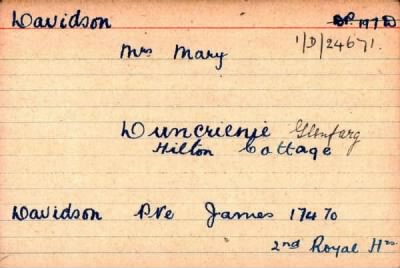 Davidson
1/D/24671.
Mrs Mary
Duncrienie Glenfarg
Hilton Cottage
Davidson Pte James 17470
2nd Royal Hrs